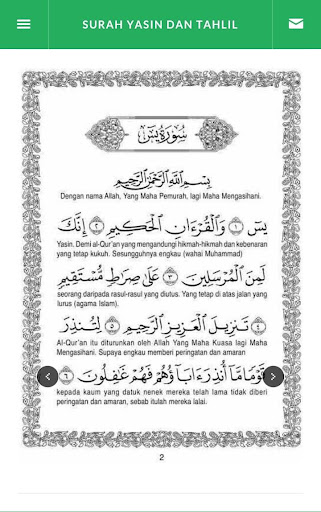 SURAH YASIN DAN TAHLIL
سُورَةُ يسٓ
بِسْمِ اللَّهِ الرَّحْمَٰنِ الرَّحِيمِ
Dengan nama Allah, Yang Maha Pemurah, lagi Maha Mengasihani.
يسٓ ﴿١﴾ وَالْقُرْءَانِ الْحَكِيمِ ﴿٢﴾ إِنَّكَ
Yasin. Demi al-Qur'an yang mengandungi hikmah-hikmah dan kebenaran
yang tetap kukuh. Sesungguhnya engkau (wahai Muhammad)
لَمِنَ الْمُرْسَلِينَ ﴿٣﴾ عَلَىٰ صِرَاطٍ مُّسْتَقِيمٍ
seorang daripada rasul-rasul yang diutus. Yang tetap di atas jalan yang
lurus (agama Islam).
﴿٤﴾ تَنزِيلَ الْعَزِيزِ الرَّحِيمِ ﴿٥﴾ لِتُنذِرَ
Al-Qur'an itu diturunkan oleh Allah Yang Maha Kuasa lagi Maha
Mengasihani. Supaya engkau memberi peringatan dan amaran
قَوْمًا مَّا أُنذِرَ ءَابَاؤُهُمْ فَهُمْ غَٰفِلُونَ ﴿٦﴾
kepada kaum yang datuk nenek mereka telah lama tidak diberi
peringatan dan amaran, sebab itulah mereka lalai.
2